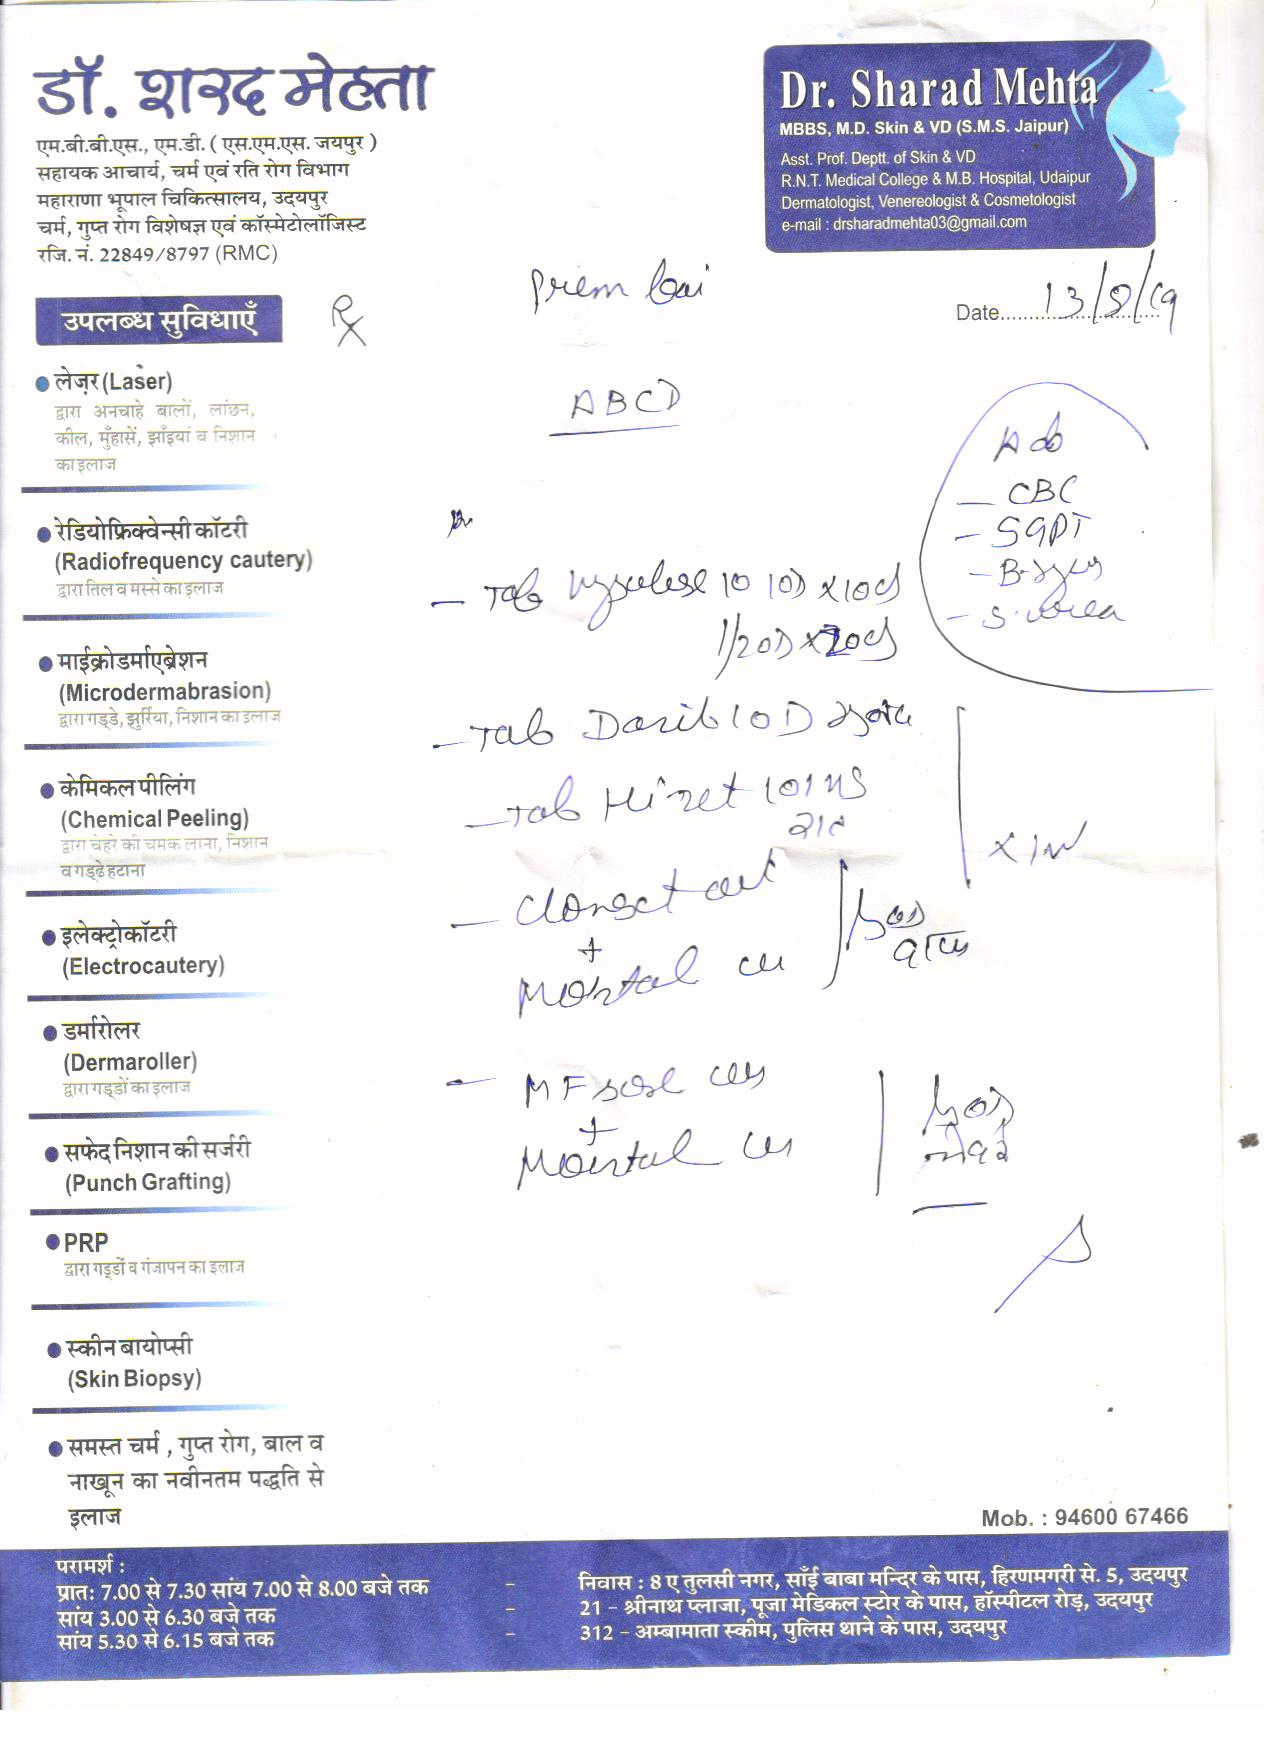 डॉ. शरद मेहता
एम.बी.बी.एस., एम.डी. ( एस.एम.एस. जयपुर )
सहायक आचार्य, चर्म एवं रति रोग विभाग
महाराणा भूपाल चिकित्सालय, उदयपुर
चर्म, गुप्त रोग विशेषज्ञ एवं कॉस्मेटोलॉजिस्ट
रजि. नं. 22849/8797 (RMC)
Dr. Sharad Mehta
MBBS, M.D. Skin & VD (S.M.S. Jaipur)
Asst. Prof. Deptt. of Skin & VD
R.N.T. Medical College & M.B. Hospital, Udaipur
Dermatologist, Venereologist & Cosmetologist
e-mail : drsharadmehta03@gmail.com
Prem bai
Date 13/8/19
उपलब्ध सुविधाएँ
लेज़र (Laser)
द्वारा अनचाहे बालों, लांछन,
कील, मुँहासें, झाँइयां व निशान
का इलाज
रेडियोफ्रिक्वेन्सी कॉटरी
(Radiofrequency cautery)
द्वारा तिल व मस्से का इलाज
माईक्रोडर्माएब्रेशन
(Microdermabrasion)
द्वारा गड्डे, झुर्रिया, निशान का इलाज
केमिकल पीलिंग
(Chemical Peeling)
द्वारा चेहरे की चमक लाना, निशान
व गड्ढे हटाना
इलेक्ट्रोकॉटरी
(Electrocautery)
डर्मारोलर
(Dermaroller)
द्वारा गड्डों का इलाज
सफेद निशान की सर्जरी
(Punch Grafting)
PRP
द्वारा गड्डों व गंजापन का इलाज
स्कीन बायोप्सी
(Skin Biopsy)
समस्त चर्म , गुप्त रोग, बाल व
नाखून का नवीनतम पद्धति से
इलाज
Rx
ABCD
CBC
SGPT
S. urea
- Tab 10 1OD x 10 d
- Tab 1OD
- Tab Hizet 10 1 HS
रात
x 1m
+
+
Mob. : 94600 67466
परामर्श :
प्रातः 7.00 से 7.30 सांय 7.00 से 8.00 बजे तक - निवास : 8 ए तुलसी नगर, साँई बाबा मन्दिर के पास, हिरणमगरी से. 5, उदयपुर
सांय 3.00 से 6.30 बजे तक - 21 – श्रीनाथ प्लाजा, पूजा मेडिकल स्टोर के पास, हॉस्पीटल रोड़, उदयपुर
सांय 5.30 से 6.15 बजे तक - 312 – अम्बामाता स्कीम, पुलिस थाने के पास, उदयपुर